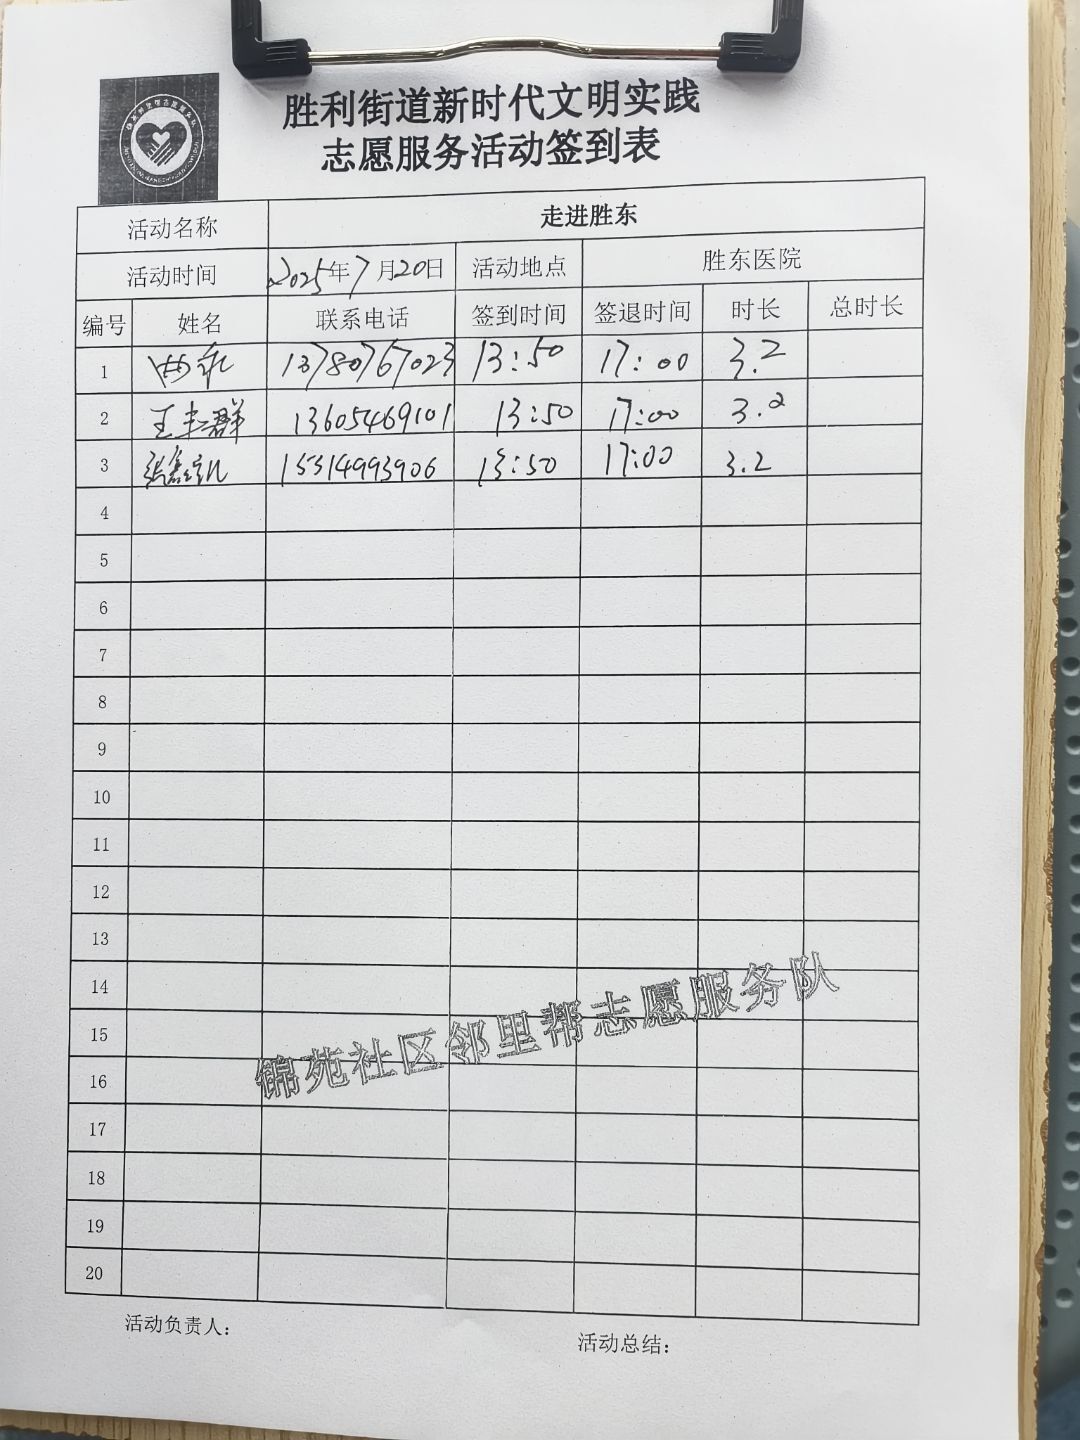 胜利街道新时代文明实践
志愿服务活动签到表
活动名称 走进胜东
活动时间 2025年7月20日 活动地点 胜东医院
编号 姓名 联系电话 签到时间 签退时间 时长 总时长
1 13780767023 13:50 17:00 3.2
2 王 群 13605469101 13:50 17:00 3.2
3 张 15314993906 13:50 17:00 3.2
4
5
6
7
8
9
10
11
12
13
14
15
16
17
18
19
20
锦苑社区邻里帮志愿服务队
活动负责人：
活动总结：